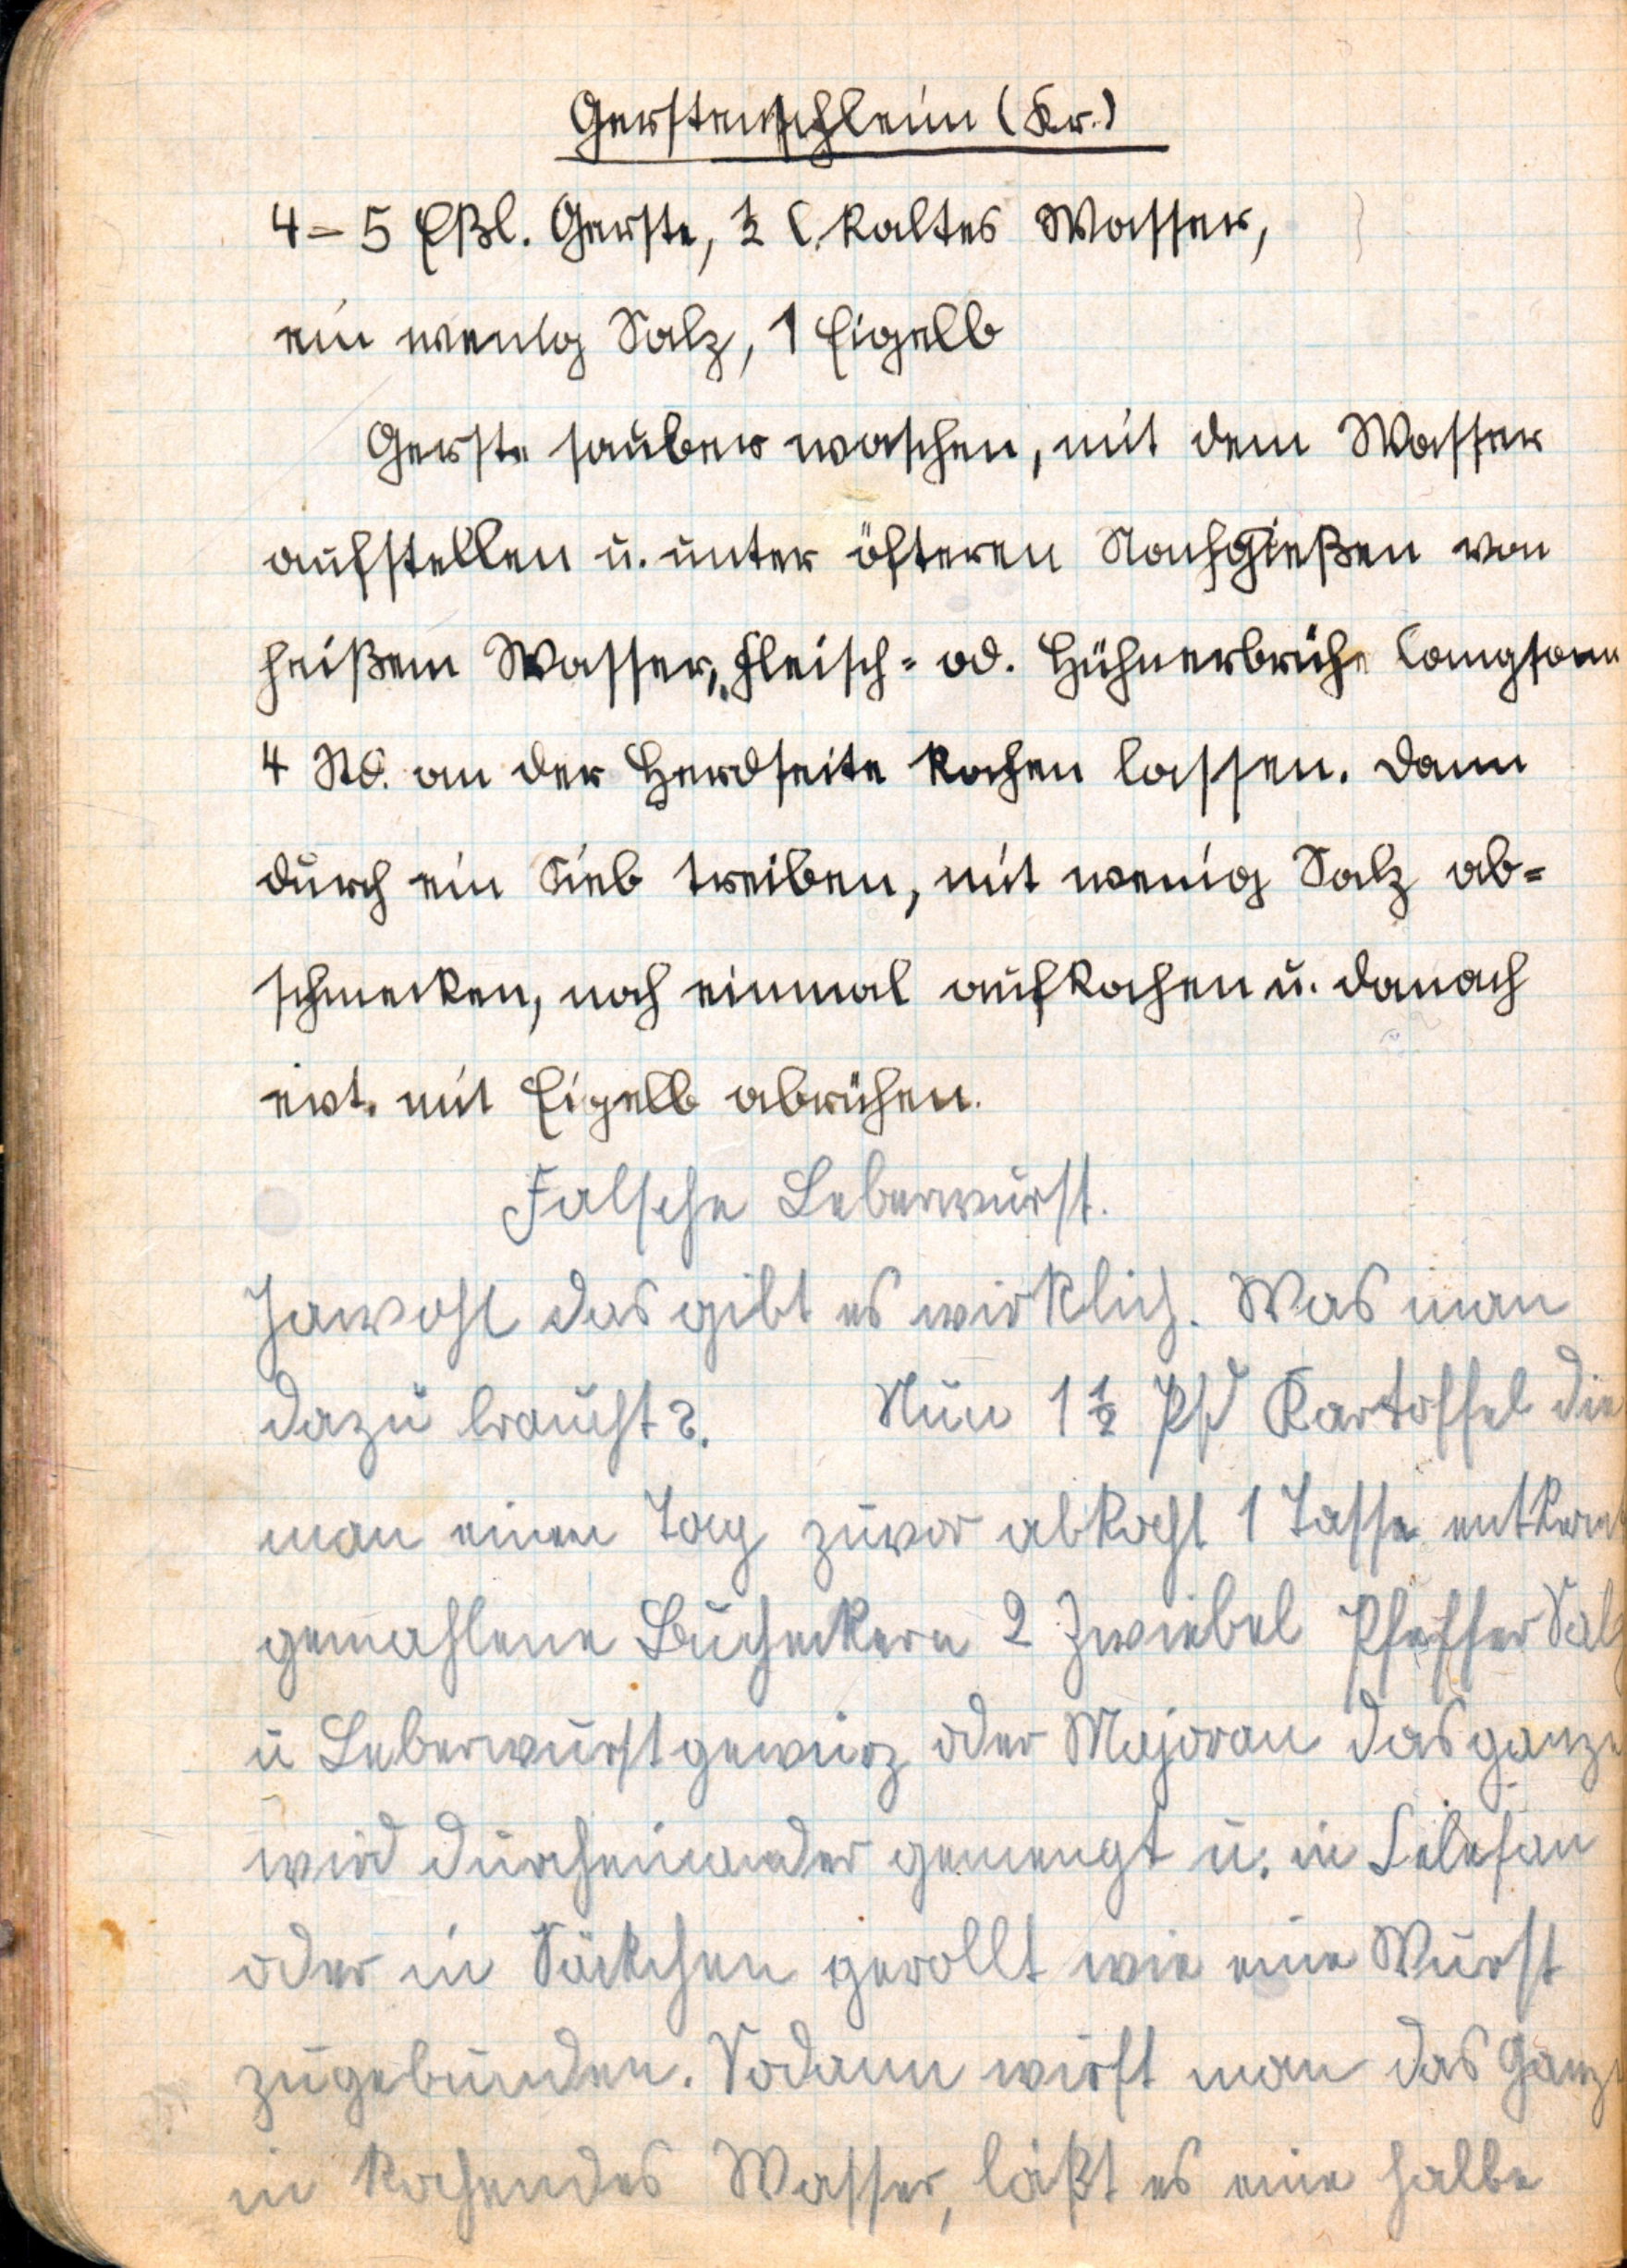 Gerstenschleim (Kr.)
4-5 Eßl. Gerste, ½ l. kaltes Wasser,
ein wenig Salz, 1 Eigelb
Gerste sauber waschen, mit dem Wasser
aufstellen u. unter öfteren Nachgießen von
heißem Wasser, Fleisch= od. Hühnerbrühe langsam
4 Std. an der Herdseite kochen lassen. Dann
durch ein Sieb treiben, mit wenig Salz ab=
schmecken, noch einmal aufkochen u. danach
evt. mit Eigelb abrühren.
Falsche Leberwurst.
Jawohl das gibt es wirklich. Was man
dazu braucht?. Nun 1½ Pfd Kartoffel die
man einen Tag zuvor abkocht 1 Tasse entkernt
gemahlene Bucheckern 2 Zwiebel Pfeffer Salz
u Leberwurstgewürz oder Majoran das ganze
wird durcheinander gemengt u. in Selefan
oder in Säckchen gerollt wie eine Wurst
zugebunden. Sodann wirft man das Ganze
in kochendes Wasser, läßt es eine halbe